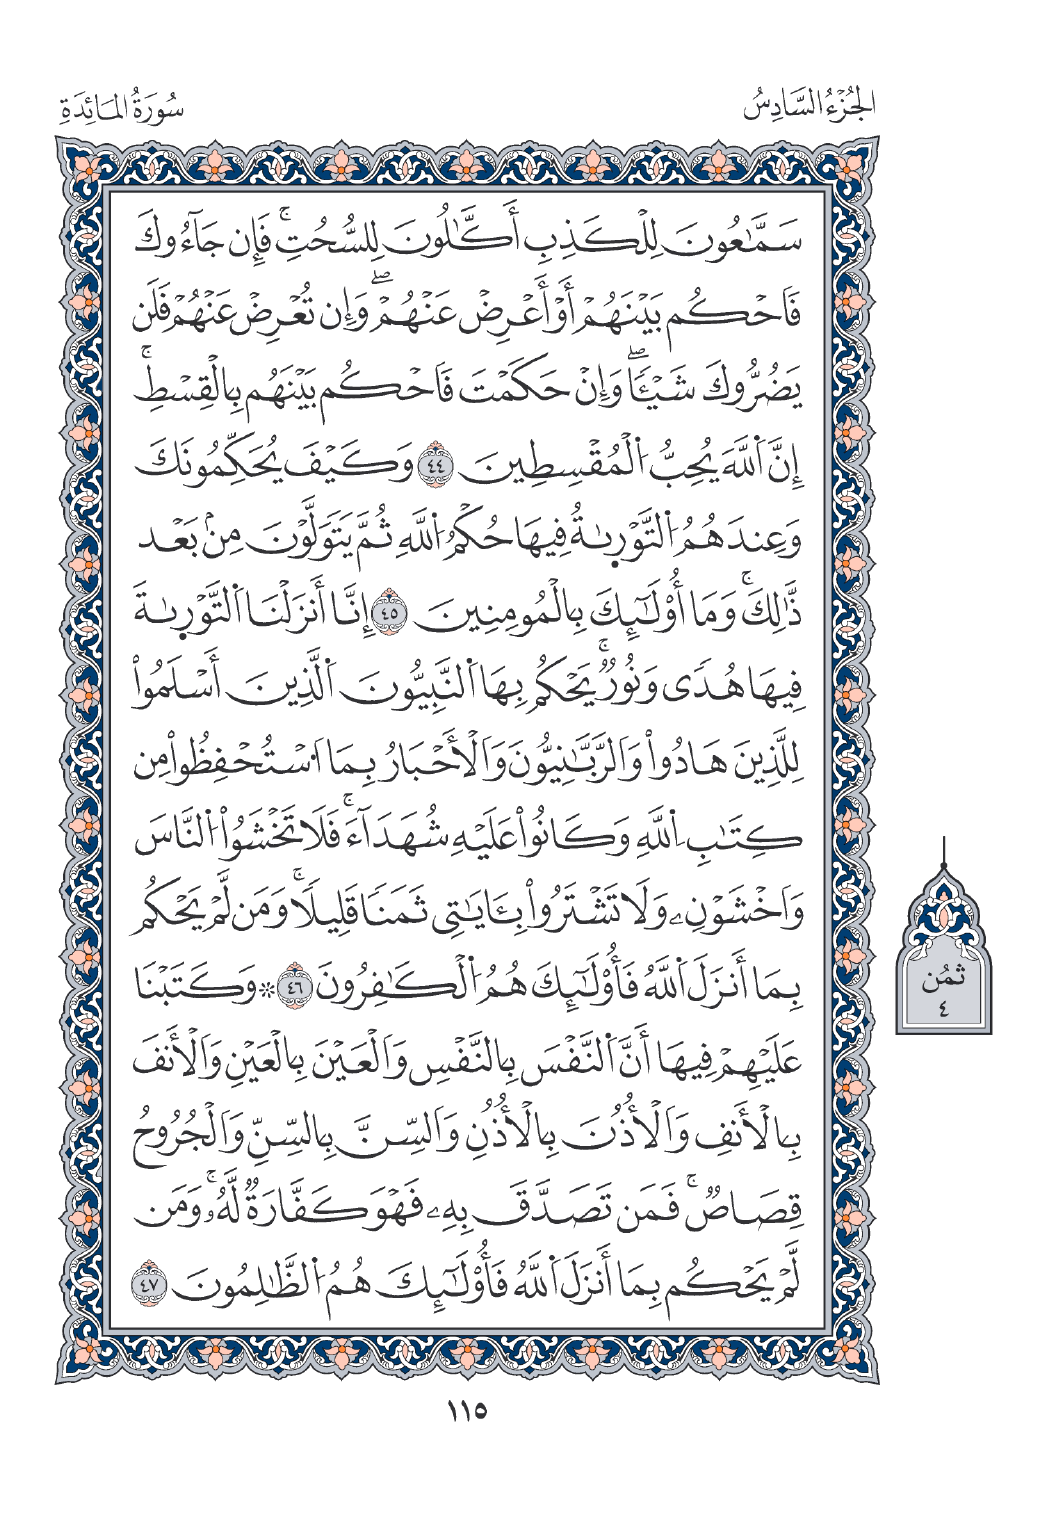 الجُزْءُ السَّادِسُ
سُورَةُ المَائِدَةِ
سَمَّٰعُونَ لِلْكَذِبِ أَكَّٰلُونَ لِلسُّحُتِۚ فَإِن جَآءُوكَ
فَاَحْكُم بَيْنَهُمْۥ أَوْ أَعْرِضْ عَنْهُمْۖ وَإِن تُعْرِضْ عَنْهُمْ فَلَن
يَضُرُّوكَ شَيْـٔٗاۖ وَإِنْ حَكَمْتَ فَاَحْكُم بَيْنَهُم بِالْقِسْطِۚ
إِنَّ اَ۬للَّهَ يُحِبُّ اُ۬لْمُقْسِطِينَ ٤٤ وَكَيْفَ يُحَكِّمُونَكَ
وَعِندَهُمُ اُ۬لتَّوْر۪ىٰةُ فِيهَا حُكْمُ اُ۬للَّهِ ثُمَّ يَتَوَلَّوْنَ مِنۢ بَعْد
ذَّٰلِكَۚ وَمَا أُوْلَٰٓئِكَ بِالْمُومِنِينَ ٤٥ إِنَّا أَنزَلْنَا اَ۬لتَّوْر۪ىٰةَ
فِيهَا هُدٗى وَنُورٞۚ يَحْكُمُ بِهَا اَ۬لنَّبِيُّونَ اَ۬لَّذِينَ أَسْلَمُواْ
لِلَّذِينَ هَادُواْ وَالرَّبَّٰنِيُّونَ وَالْأَحْبَارُ بِمَا اَ۟سْتُحْفِظُواْ مِن
كِتَٰبِ اِ۬للَّهِ وَكَانُواْ عَلَيْهِ شُهَدَآءَۚ فَلَا تَخْشَوُاْ اُ۬لنَّاسَ
وَاَخْشَوْنِۦ وَلَا تَشْتَرُواْ بِـَٔايَٰتِي ثَمَنٗا قَلِيلٗاۚ وَمَن لَّمْ يَحْكُم
بِمَا أَنزَلَ اَ۬للَّهُ فَأُوْلَٰٓئِكَ هُمُ اُ۬لْكَٰفِرُونَ ٤٦ ۞ وَكَتَبْنَا
عَلَيْهِمْ فِيهَا أَنَّ اَ۬لنَّفْسَ بِالنَّفْسِ وَالْعَيْنَ بِالْعَيْنِ وَالْأَنفَ
بِالْأَنفِ وَالْأُذُنَ بِالْأُذُنِ وَالسِّنَّ بِالسِّنِّ وَالْجُرُوحُ
قِصَاصٞۚ فَمَن تَصَدَّقَ بِهِۦ فَهْوَ كَفَّارَةٞ لَّهُۥۚ وَمَن
لَّمْ يَحْكُم بِمَا أَنزَلَ اَ۬للَّهُ فَأُوْلَٰٓئِكَ هُمُ اُ۬لظَّٰلِمُونَ ٤٧
ثمُن
٤
١١٥